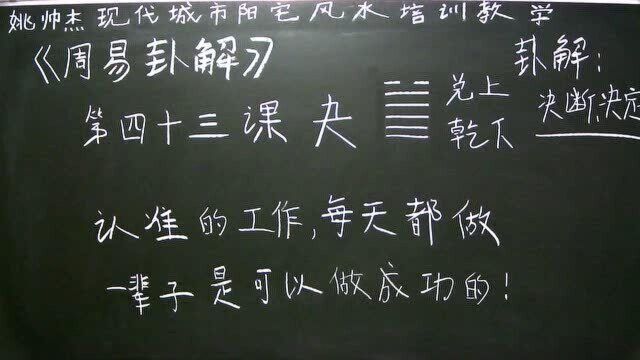 姚帅杰现代城市阳宅风水培训教学
《周易卦解》 卦解:
第四十三课 夬 兑上 决断,决定
乾下
认准的工作,每天都做
一辈子是可以做成功的!